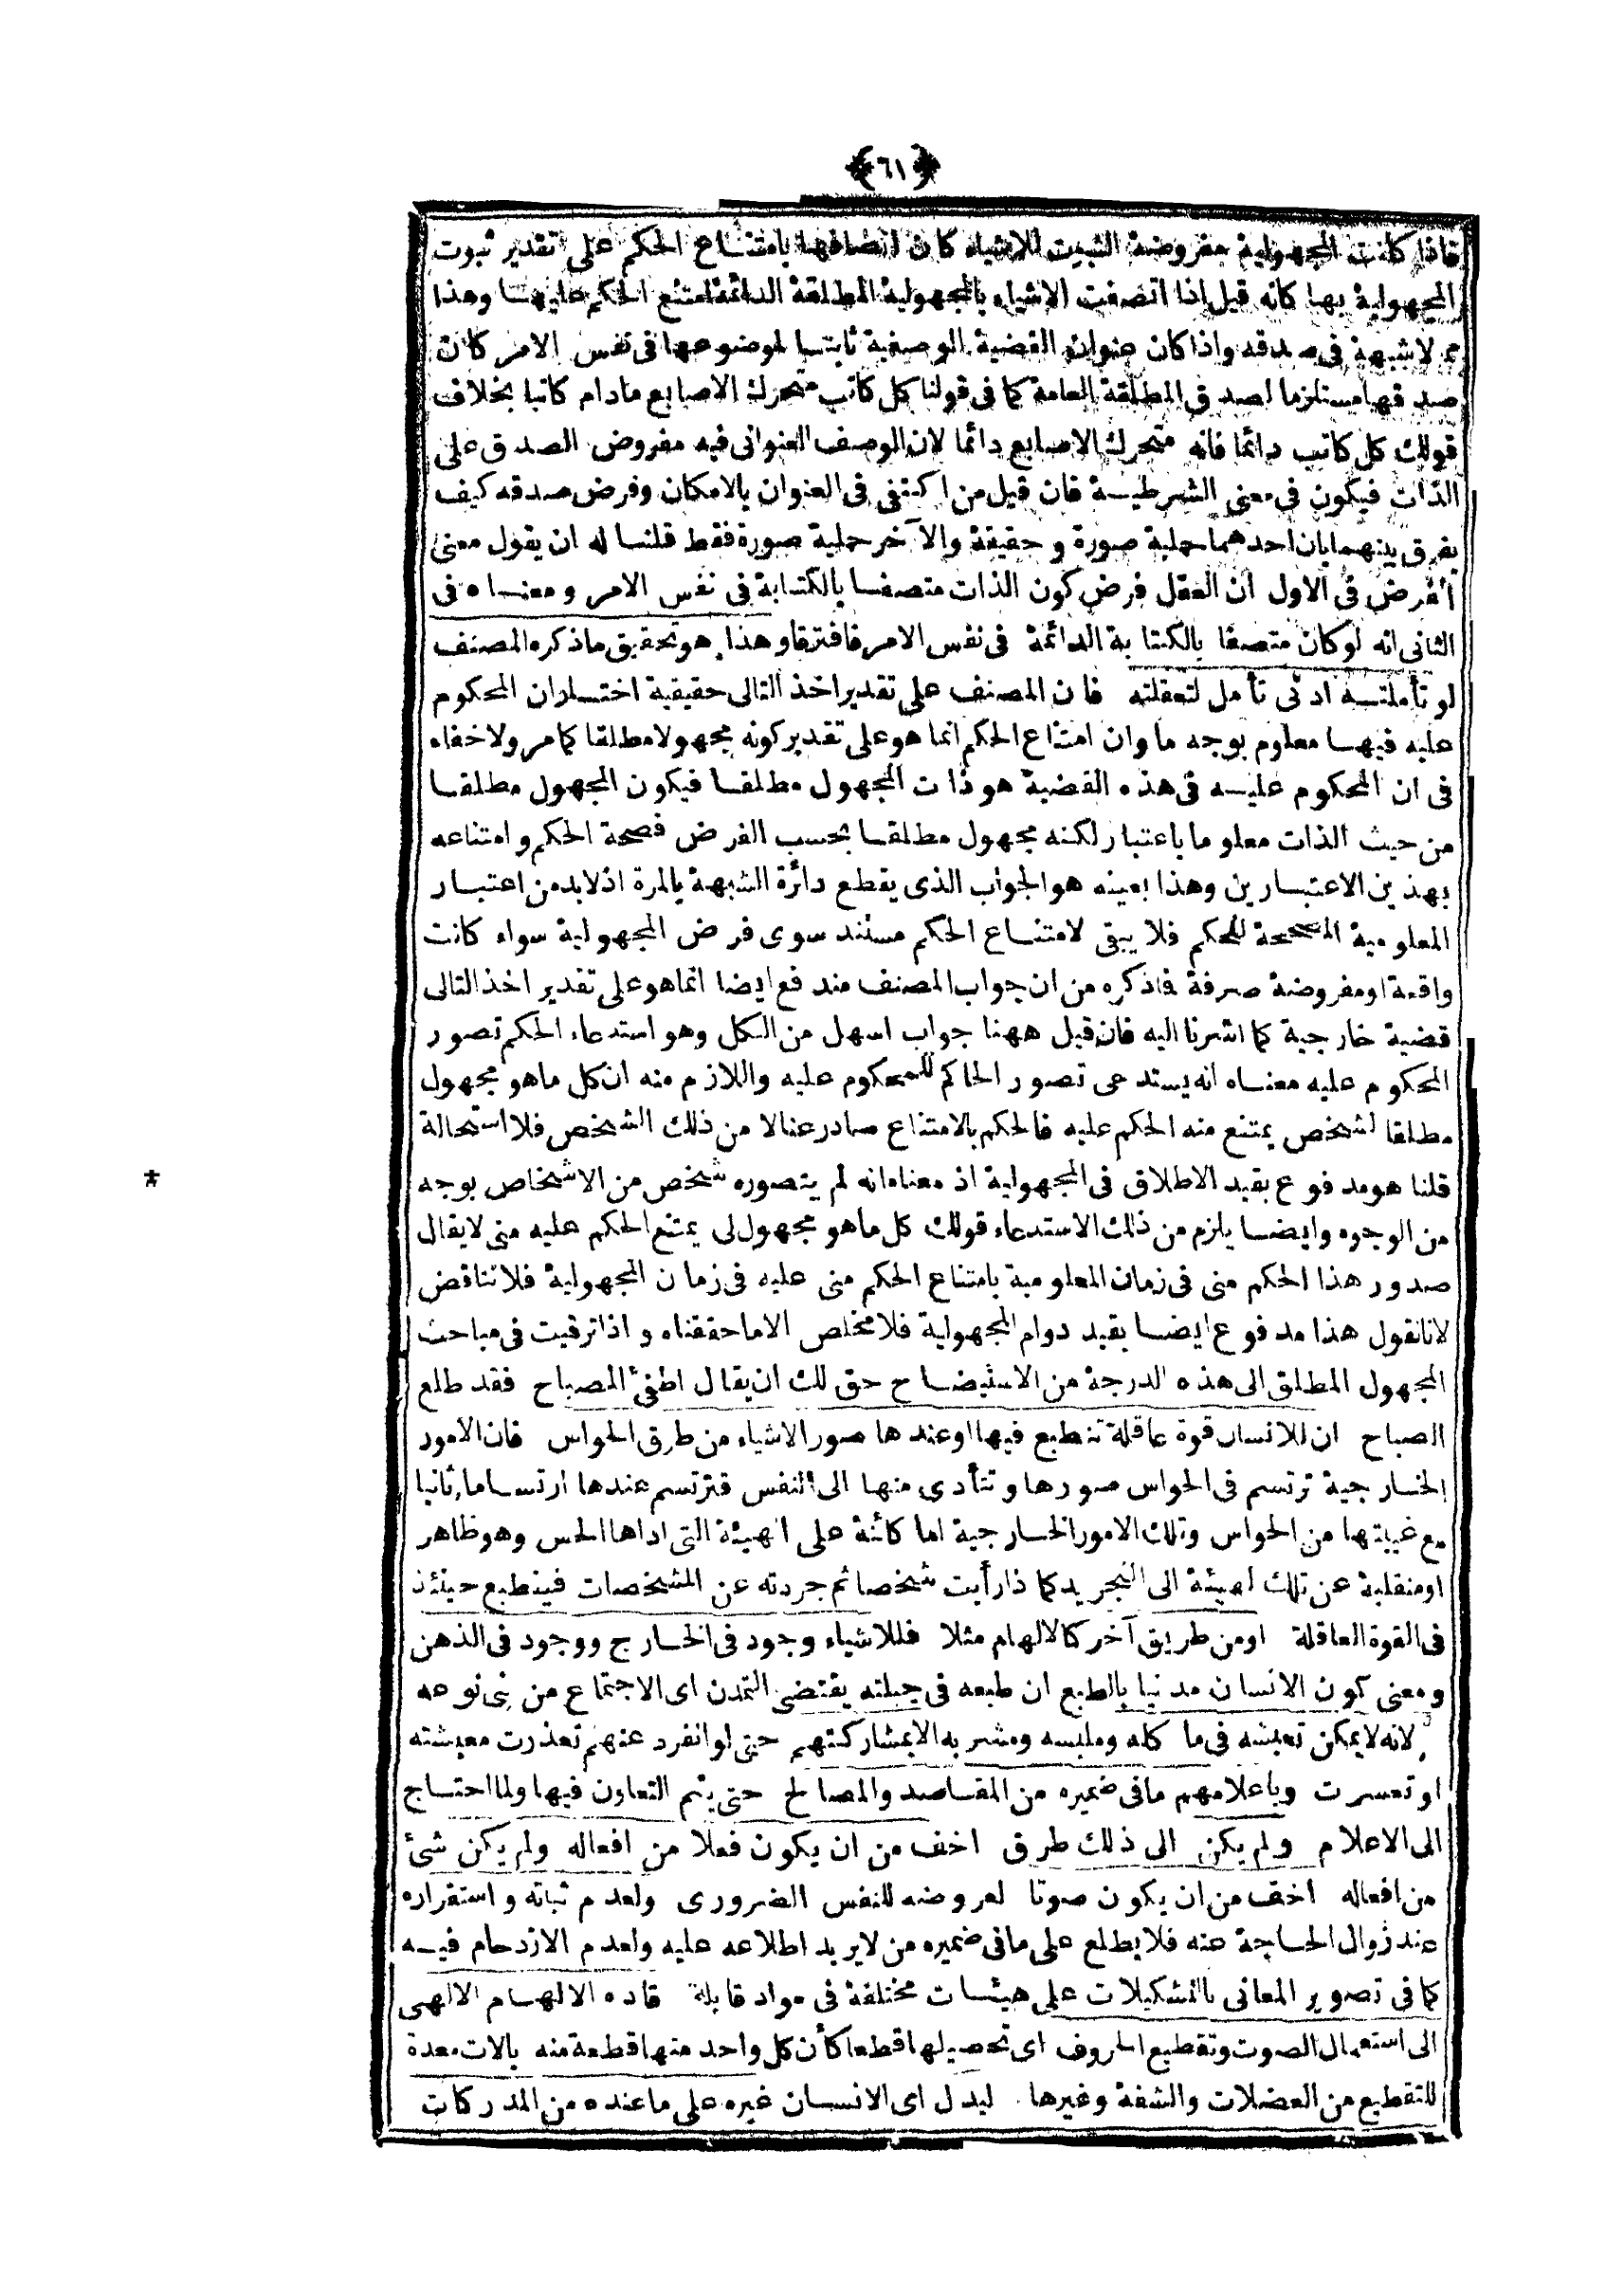 ﴿٦١﴾
فاذا كانت المجهولية مفروضة الثبوت للاشياء كان اتصافها بامتناع الحكم على تقدير ثبوت
المجهولية بها كانه قيل اذا اتصفت الاشياء بالمجهولية المطلقة الدائمة امتنع الحكم عليها وهذا
مما لا شبهة فى صدقه واذا كان عنوان القضية الوصفية ثابتا لموضوعها فى نفس الامر كان
صدقها مستلزما لصدق المطلقة العامة كما فى قولنا كل كاتب متحرك الاصابع مادام كاتبا بخلاف
قولك كل كاتب دائما فانه متحرك الاصابع دائما لان الوصف العنوانى فيه مفروض الصدق على
الذات فيكون فى معنى الشرطية فان قيل من اكتفى فى العنوان بالامكان وفرض صدقه كيف
يفرق بينهما بان احدهما حملية صورة و حقيقة والآخر حملية صورة فقط قلنا له ان يقول معنى
الفرض فى الاول ان العقل فرض كون الذات متصفا بالكتابة فى نفس الامر و معناه فى
الثانى انه لو كان متصفا بالكتابة الدائمة فى نفس الامر فافترقا وهذا هو تحقيق ما ذكره المصنف
لو تأملته ادنى تأمل لتعقلته فان المصنف على تقدير اخذ التالى حقيقية اختار ان المحكوم
عليه فيها معلوم بوجه ما وان امتناع الحكم انما هو على تقدير كونه مجهولا مطلقا كما مر ولا خفاء
فى ان المحكوم عليه فى هذه القضية هو ذات المجهول مطلقا فيكون المجهول مطلقا
من حيث الذات معلوما باعتبار لكنه مجهول مطلقا بحسب الفرض فصحة الحكم و امتناعه
بهذين الاعتبارين وهذا بعينه هو الجواب الذى يقطع دائرة الشبهة بالمرة اذ لابد من اعتبار
المعلومية المصححة للحكم فلا يبقى لامتناع الحكم مستند سوى فرض المجهولية سواء كانت
واقعة او مفروضة صرفة فاذكره من ان جواب المصنف مندفع ايضا انما هو على تقدير اخذ التالى
قضية خارجية كما اشرنا اليه فان قيل ههنا جواب اسهل من الكل وهو استدعاء الحكم تصور
المحكوم عليه معناه انه يستدعى تصور الحاكم للمحكوم عليه واللازم منه ان كل ما هو مجهول
مطلقا لشخص يمتنع منه الحكم عليه فالحكم بالامتناع صادر عنا لا من ذلك الشخص فلا استحالة
قلنا هو مدفوع بقيد الاطلاق فى المجهولية اذ معناه انه لم يتصوره شخص من الاشخاص بوجه
من الوجوه وايضا يلزم من ذلك الاستدعاء قولك كل ما هو مجهول لى يمتنع الحكم عليه منى لا يقال
صدور هذا الحكم منى فى زمان المعلومية بامتناع الحكم منى عليه فى زمان المجهولية فلا تناقض
لانا نقول هذا مدفوع ايضا بقيد دوام المجهولية فلا مخلص الا ما حققناه و اذا ترقيت فى مباحث
المجهول المطلق الى هذه الدرجة من الاستيضاح حق لك ان يقال اطفئ المصباح فقد طلع
الصباح ان للانسان قوة عاقلة تنطبع فيها او عندها صور الاشياء من طرق الحواس فان الامور
الخارجية ترتسم فى الحواس صورها و تتأدى منها الى النفس فترتسم عندها ارتساما ثانيا
مع غيبتها من الحواس وتلك الامور الخارجية اما كائنة على الهيئة التى اداها الحس وهو ظاهر
او منقلبة عن تلك الهيئة الى التجريد كما اذا رأيت شخصا ثم جردته عن المشخصات فينطبع حينئذ
فى القوة العاقلة او من طريق آخر كالالهام مثلا فللاشياء وجود فى الخارج ووجود فى الذهن
و معنى كون الانسان مدنيا بالطبع ان طبعه فى جبلته يقتضى التمدن اى الاجتماع من بنى نوعه
لانه لا يمكن تعيشه فى ماكله وملبسه ومشربه الا بمشاركتهم حتى لو انفرد عنهم تعذرت معيشته
او تعسرت وباعلامهم ما فى ضميره من المقاصد والمصالح حتى يتم التعاون فيها ولما احتاج
الى الاعلام ولم يكن الى ذلك طرق اخف من ان يكون فعلا من افعاله ولم يكن شئ
من افعاله اخف من ان يكون صوتا لعروضه للنفس الضرورى ولعدم ثباته و استقراره
عند زوال الحاجة عنه فلا يطلع على ما فى ضميره من لا يريد اطلاعه عليه ولعدم الازدحام فيه
كما فى تصوير المعانى بالتشكيلات على هيئات مختلفة فى مواد قابلة قاده الالهام الالهى
الى استعمال الصوت وتقطيع الحروف اى تحصيلها قطعا كأن كل واحد منها قطعة منه بالات معدة
للتقطيع من العضلات والشفة وغيرها ليدل اى الانسان غيره على ما عنده من المدركات